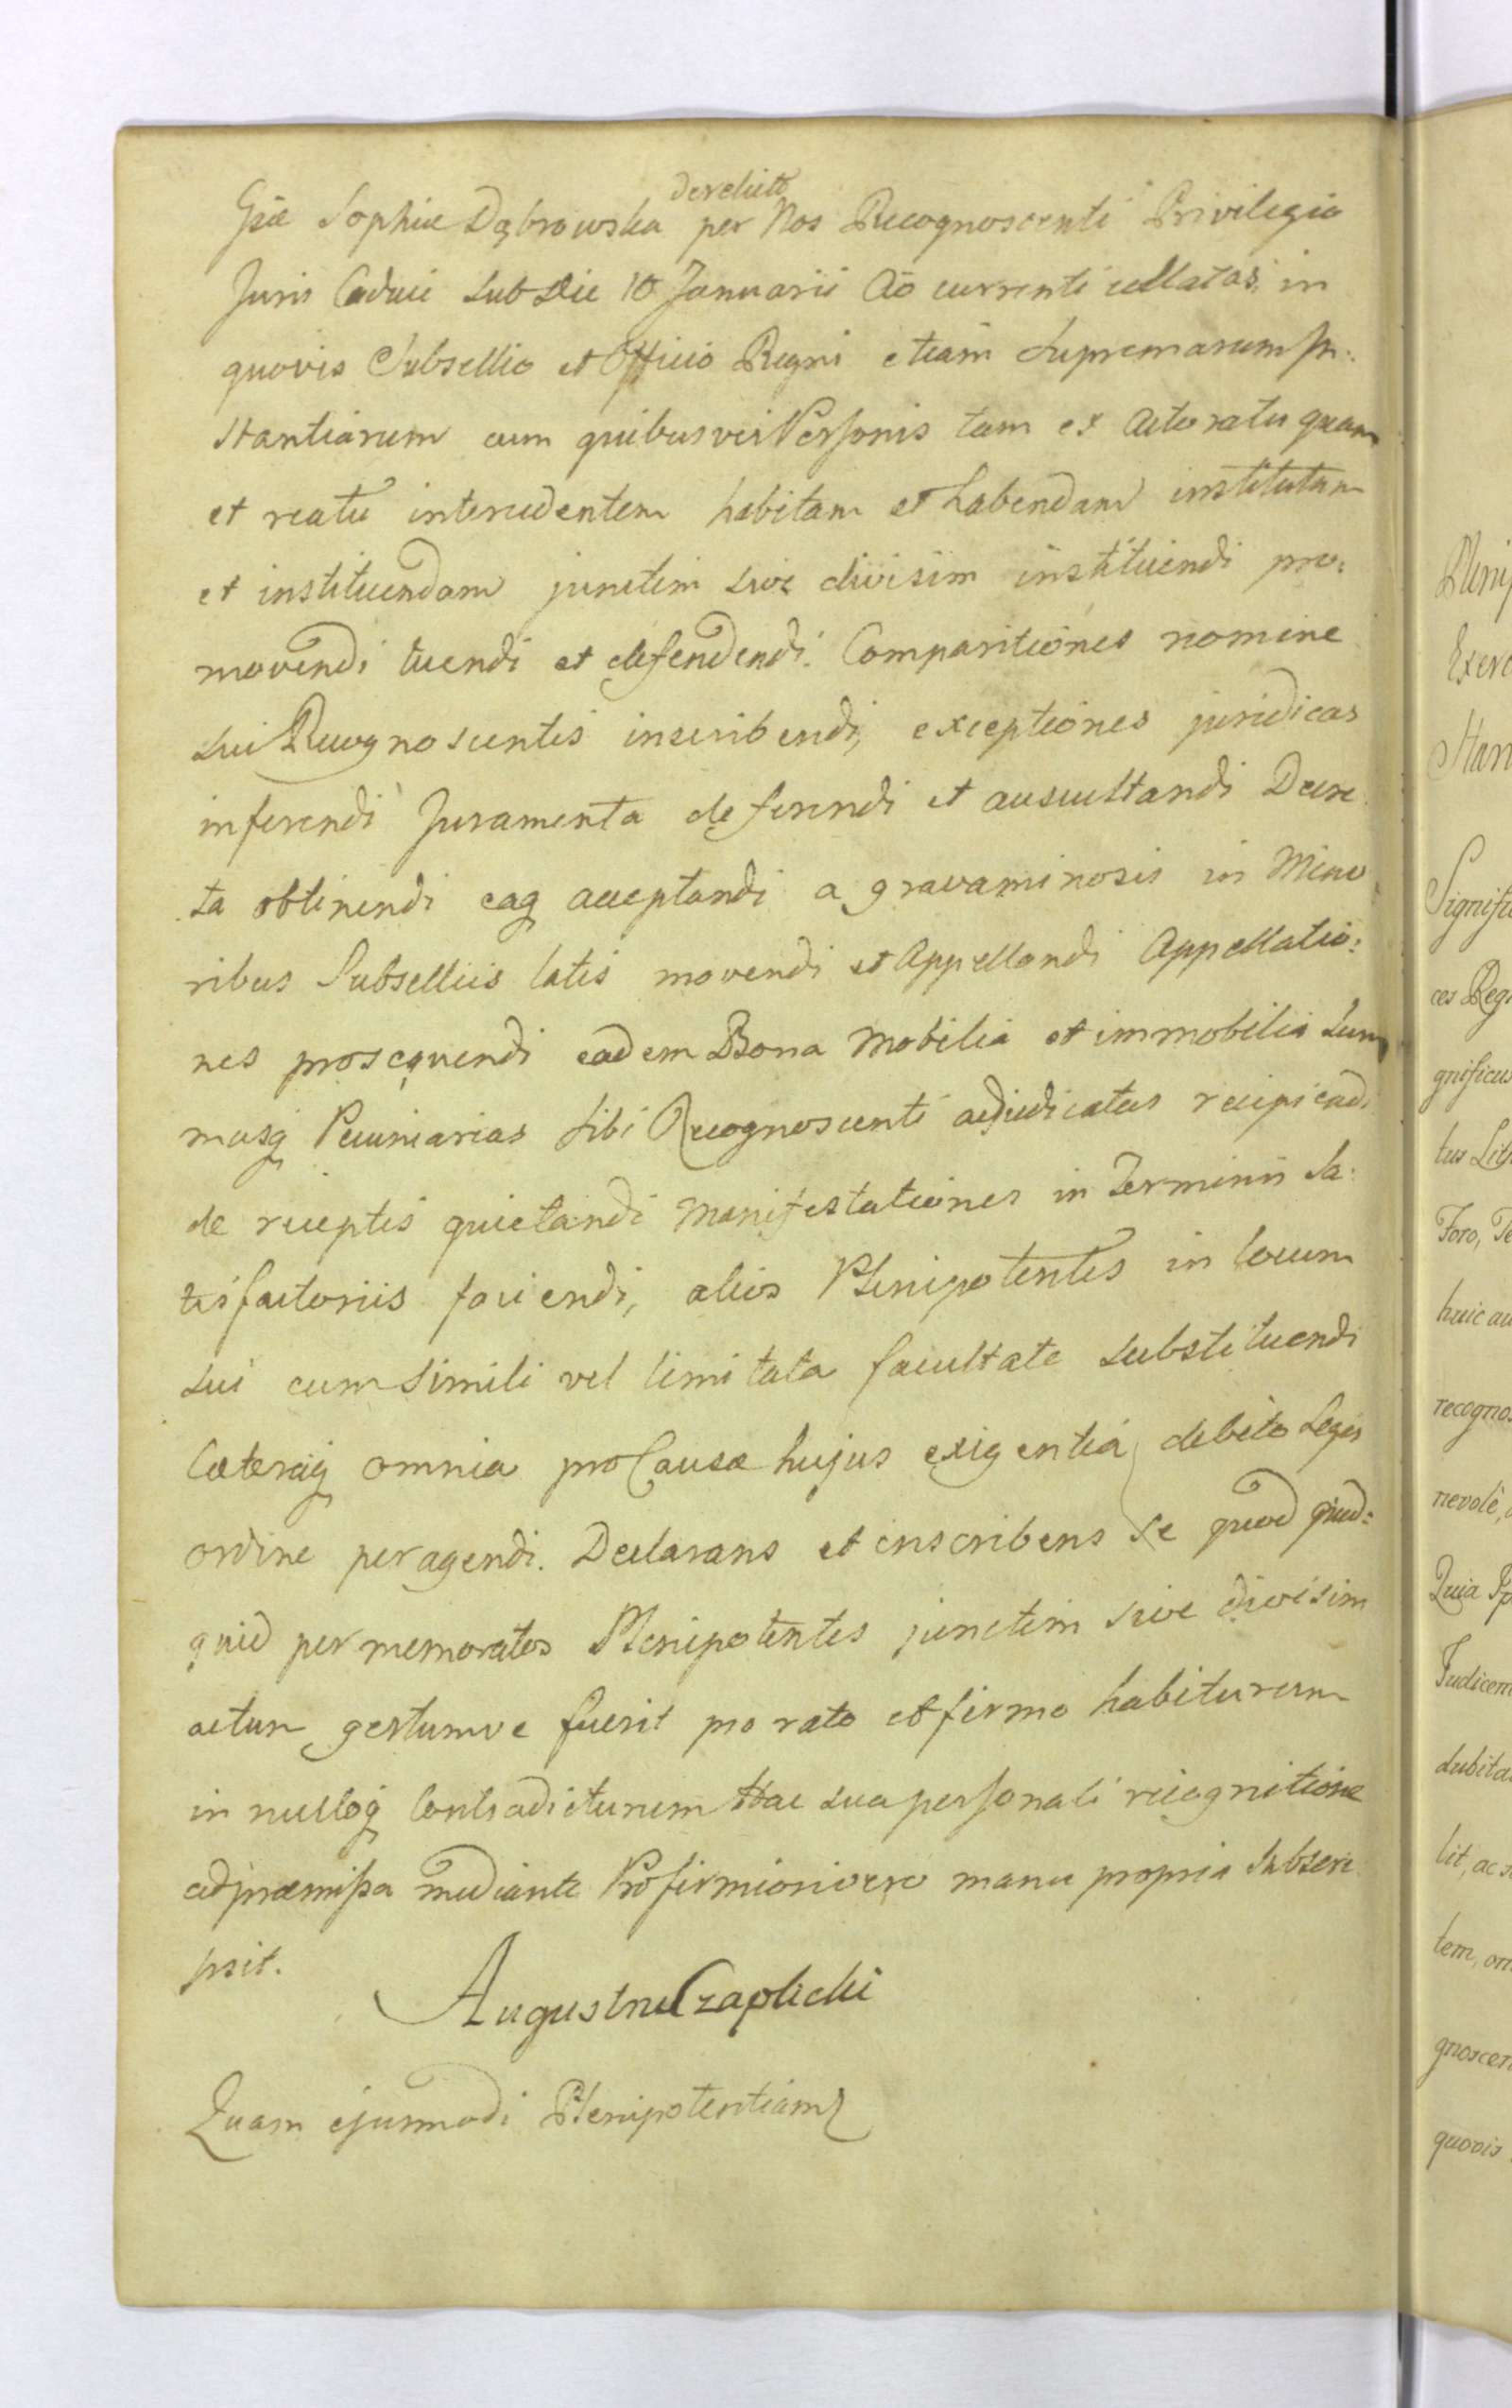 derelicto
Gsæ Sophiæ Dąbrowska per Nos Recognoscenti Privilegio
Juris Caduci sub Die 10 Januarii Aõ currenti collatas, in
quovis Subsellio et Officio Regni etiam Supremarum In:
stantiarum cum quibusvis Personis tam ex Actoratu quam
et reatu intercedentem habitam et habendam institutam
et instituendam junctim sive divisim instituendi pro:
movendi tuendi et defendendi. Comparitiones nomine
sui Recognoscentis inscribendi, exceptiones juridicas
inferendi Juramenta deferendi et auscultandi Decre
ta obtinendi eaq acceptandi a gravaminosis in Mino
ribus Subselliis latis movendi et Appellandi Appellatio:
nes prosequendi eadem Bona Mobilia et immobilia Sum
masq Pecuniarias sibi Recognoscenti adjudicatas
de receptis quietandi Manifestationes in Terminis Sa:
tisfactoriis faciendi, alios Plenipotentes in locum
sui cum simili vel limitata facultate substituendi
Cæteraq omnia pro Causæ hujus exigentia debito Legis
ordine peragendi. Declarans et inscribens se quod quid:
quid per memoratos Plenipotentes junctim sive divisim
actum gestumve fuerit pro rato et firmo habiturum
in nulloq Contradicturum Hac sua personali recognitione
ad præmissa mediante Pro firmiori vero manu propria Subscri
psit.
Augustus Czaplicki
Quam ejusmodi Plenipotentiam
Exerc
Signific
ces Reg
gnificus
Foro, Te
recogno
nevolè,
Quia Ip
Judicem
dubita
lit, ac s
tem, om
gnoscen
quovis